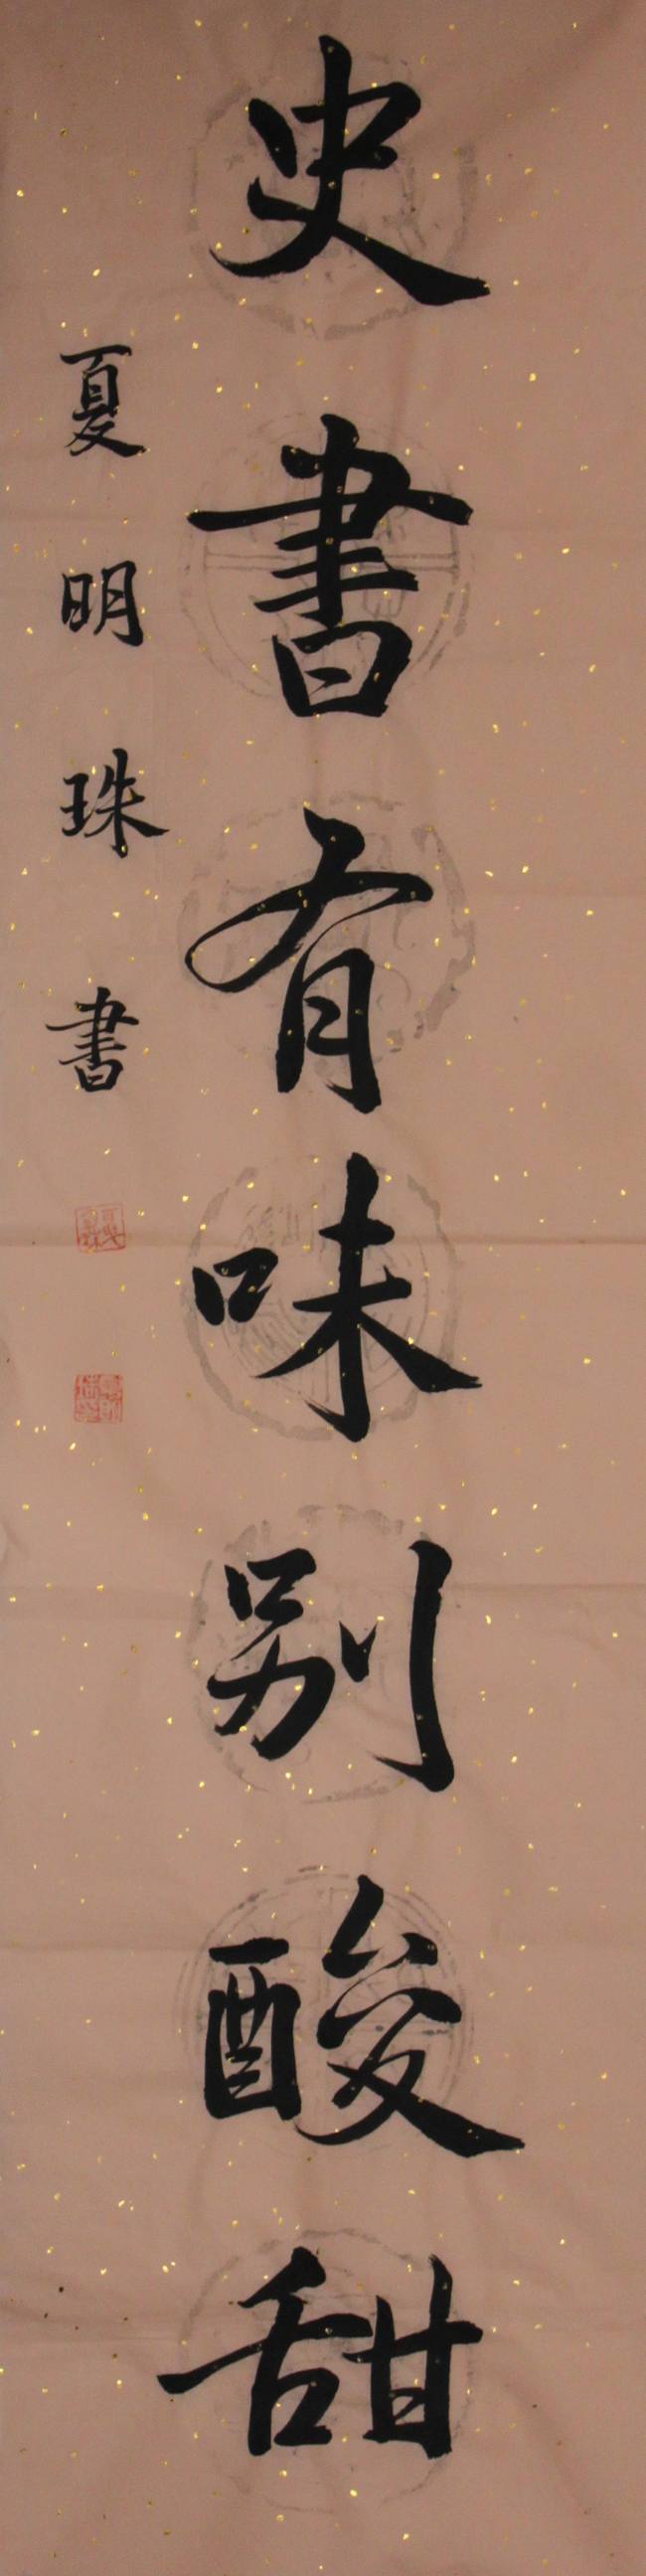 史書有味別酸甜
夏明珠書